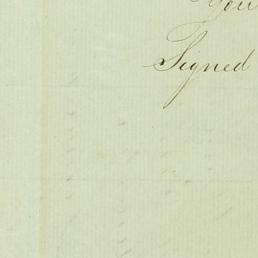 You
Signed